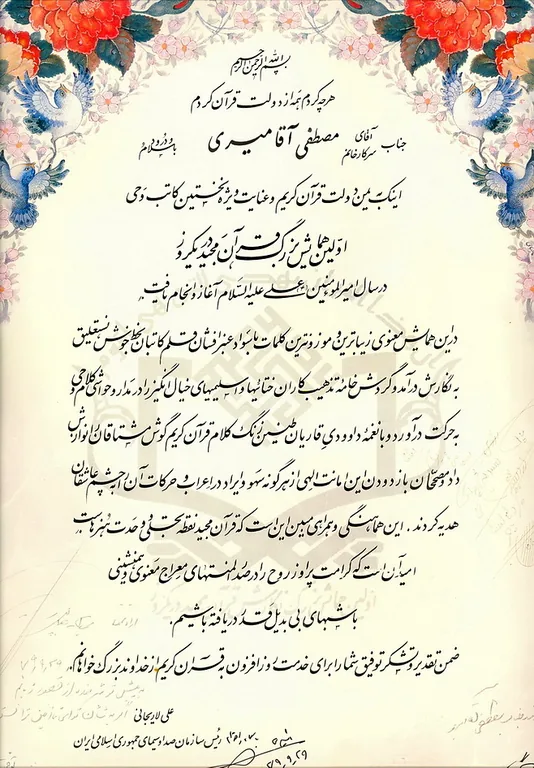 بسم الله الرحمن الرحیم
هرچه کردم همه از دولت قرآن کردم
جناب آقای سرکار خانم مصطفی آقامیری با درود و سلام
اینک به یمن دولت قرآن کریم و عنایت ویژه نخستین کاتب وحی
اولین همایش بزرگ قرآن مجید در یکروز
در سال امیرالمومنین علی علیه السلام آغاز و انجام یافت.
در این همایش معنوی زیباترین و موزونترین کلمات با سواد عنبرافشان و قلم کاتبان بخط خوش نستعلیق
به نگارش درآمد و گردش خامه تذهیب کاران ختائیها و اسلیمیهای خیال انگیز را در مدار و حواشی کلام وحی
به حرکت درآورد و با نغمهٔ داوودی قاریان طنین زنگ کلام قرآن کریم گوش مشتاقان را نوازش
داد و مصححان با زدودن این امانت الهی از هرگونه سهو و ایراد در اعراب و حرکات آن را به چشم عاشقان
هدیه کردند. این هماهنگی و همراهی مبین این است که قرآن مجید نقطه تجلی و وحدت هنرهاست.
امید آن است که کرامت پرواز روح را در صدر المنتهای معراج معنوی و همنشینی
با شبهای بی بدیل قدر دریافته باشیم.
ضمن تقدیر و تشکر توفیق شما را برای خدمت روزافزون به قرآن کریم از خداوند بزرگ خواهانم.
علی لاریجانی
رئیس سازمان صدا و سیمای جمهوری اسلامی ایران
۷۹،۹،۲۹